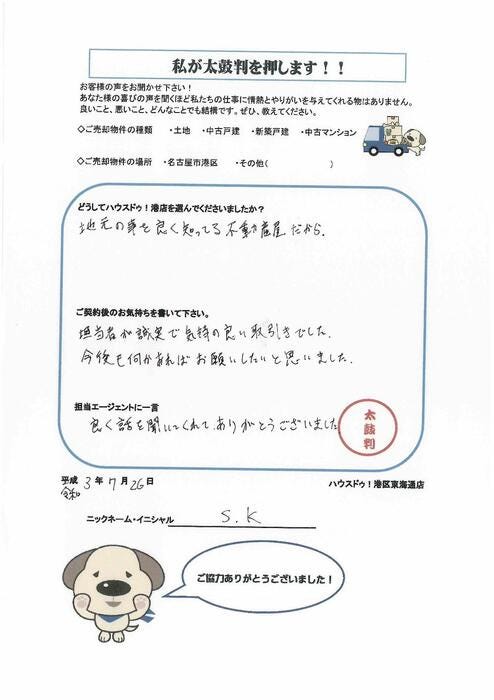 私が太鼓判を押します！！
お客様の声をお聞かせ下さい！
あなた様の喜びの声を聞くほど私たちの仕事に情熱とやりがいを与えてくれる物はありません。
良いこと、悪いこと、どんなことでも結構です。ぜひ、教えてください。
◇ご売却物件の種類　・土地　・中古戸建　・新築戸建　・中古マンション
◇ご売却物件の場所　・名古屋市港区　・その他(　　　　　)
どうしてハウスドゥ！港店を選んでくださいましたか？
地元の事を良く知ってる不動産屋だから.
ご契約後のお気持ちを書いて下さい。
担当者が誠実で気持の良い取引きでした.
今後も何かあればお願いしたいと思いました.
担当エージェントに一言
良く話を聞いてくれて、ありがとうございました
太鼓判
平成 3 年 7 月 26 日
令和
ハウスドゥ！港区東海通店
ニックネーム・イニシャル S.K
ご協力ありがとうございました！